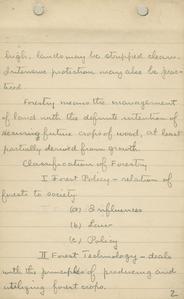 high, lands may be stripped clean.
Intensive protection may also be prac-
ticed.
Forestry means the management
of land with the definite intention of
securing future crops of wood, at least
partially derived from growth.
Classification of Forestry
I Forest Policy - relation of
forests to society
(a) Influences
(b) Law
(c) Policy
II Forest Technology - deals
with the principles of producing and
utilizing forest crops.
2.